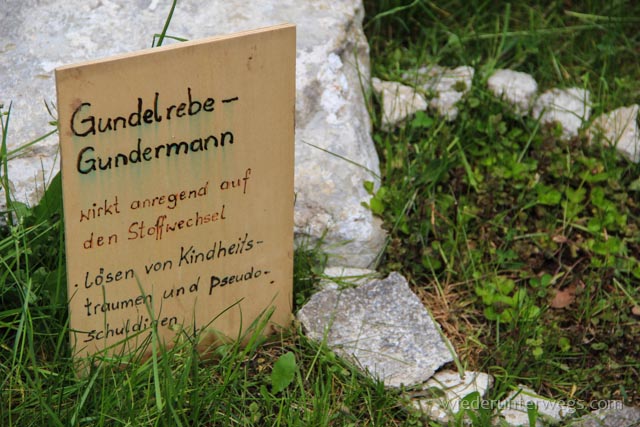 Gundelrebe-
Gundermann
wirkt anregend auf
den Stoffwechsel
· lösen von Kindheits-
traumen und Pseudo-
schuldigen
wiederunterwegs.com